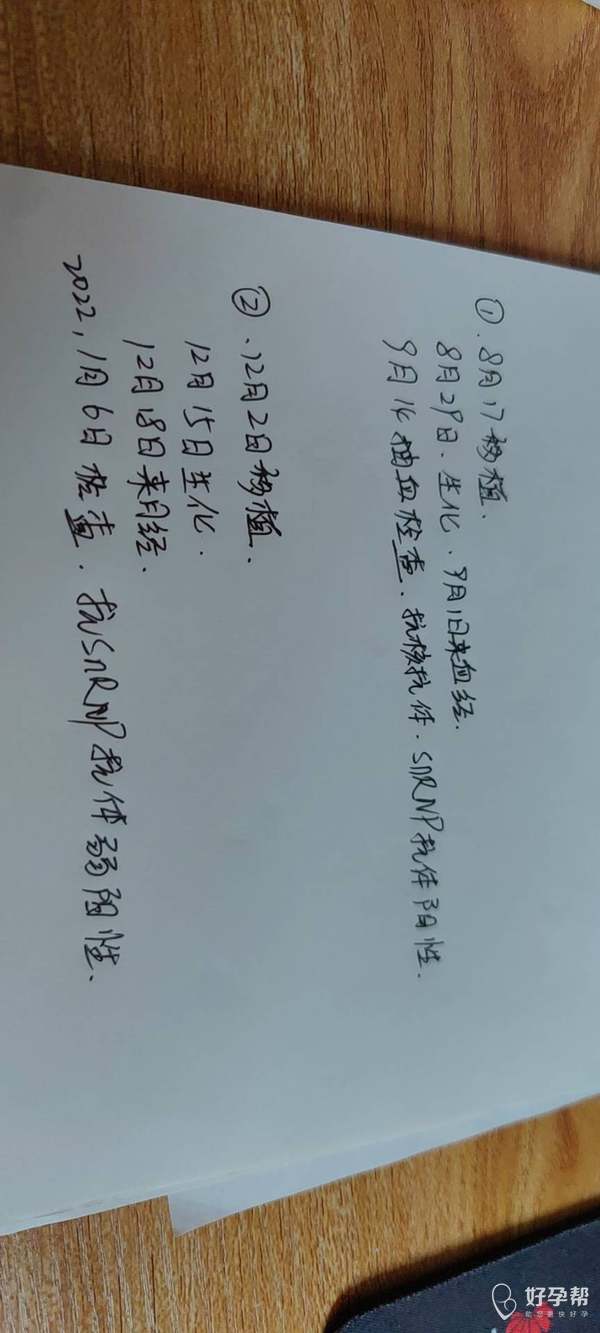 ①、8月17移植.
8月29日、生化、9月1日来血经.
9月14抽血检查. 抗核抗体. SnRNP抗体阳性.
②、12月2日移植.
12月15日生化.
12月18日来月经.
2022, 1月6日检查. 抗SnRNP抗体弱阳性.
好孕帮
助您更快好孕